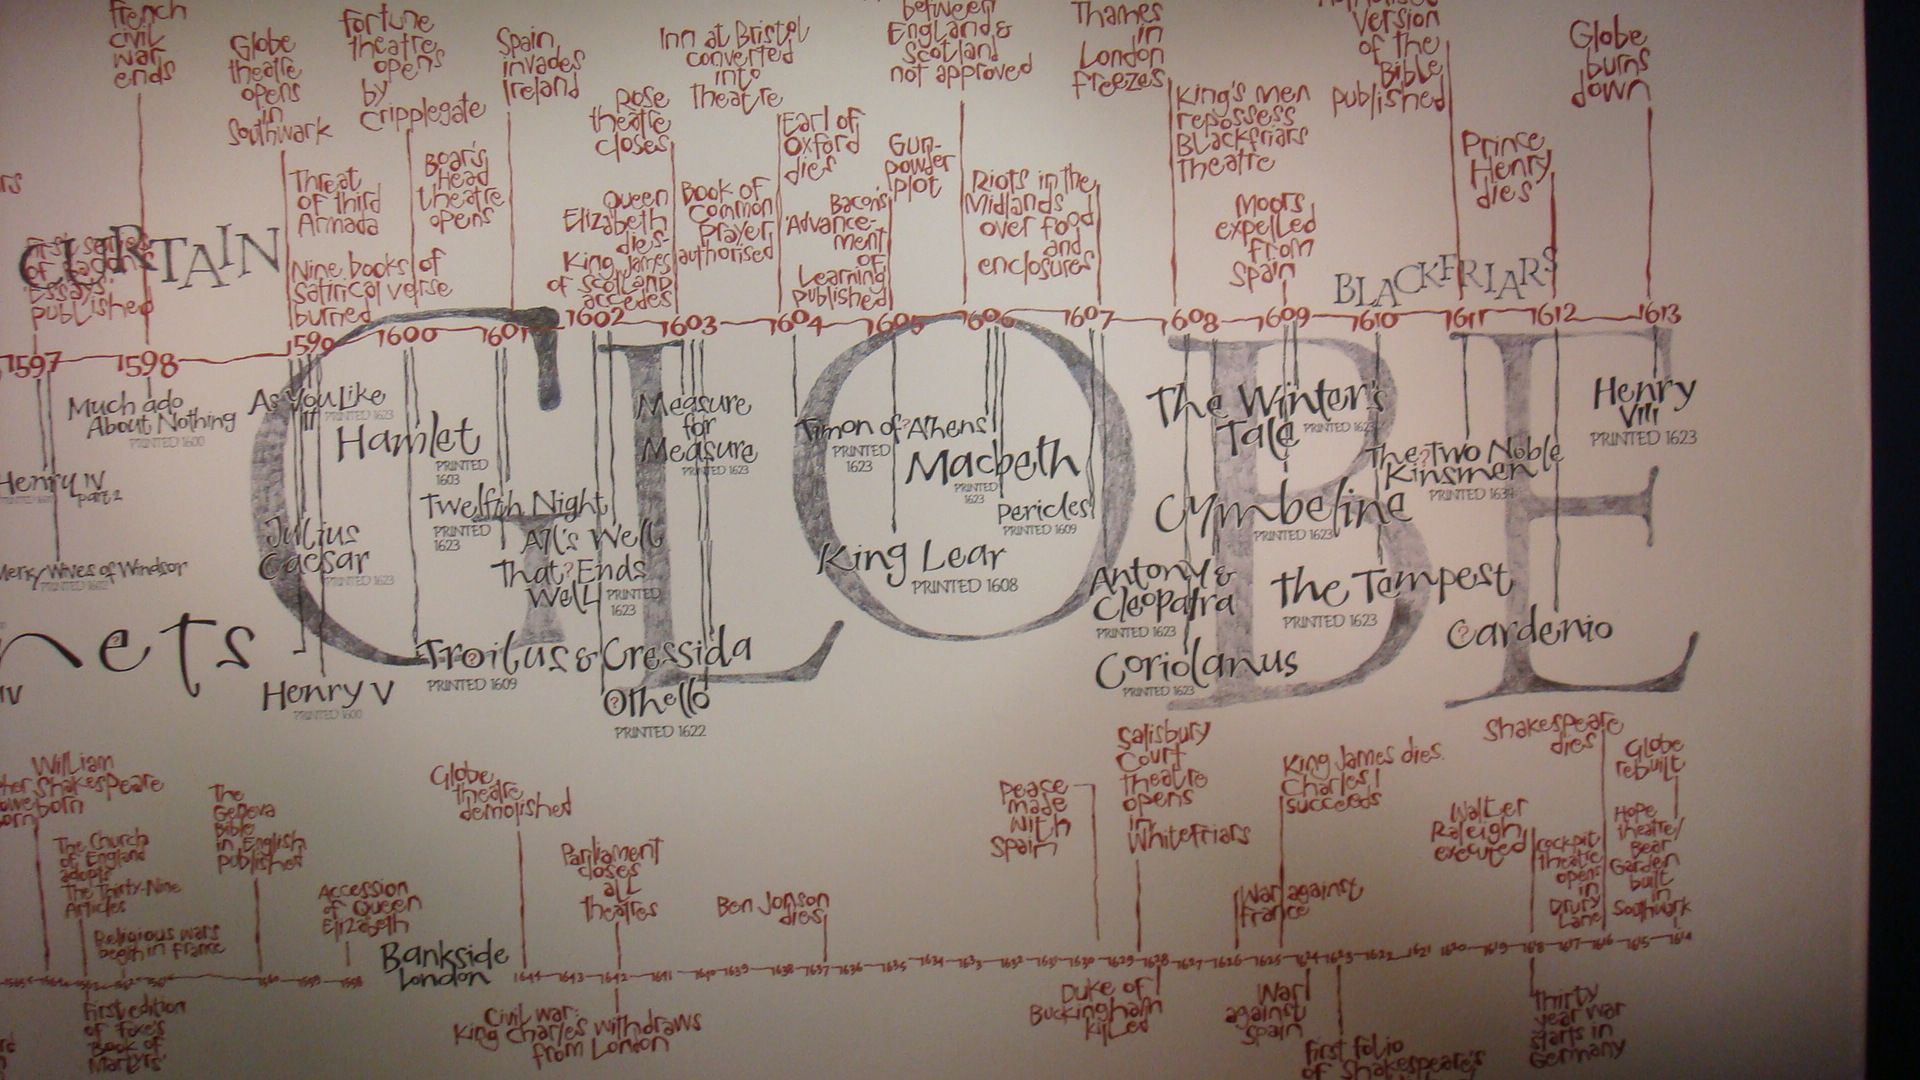 French
civil
war
ends
Globe
theatre
opens
in
Southwark
Fortune
theatre
opens
by
Cripplegate
Spain
invades
Ireland
Inn at Bristol
converted
into
theatre
between
England &
Scotland
not approved
Thames
in
London
freezes
Version
of the
Bible
published
Globe
burns
down
Rose
theatre
closes
Earl of
Oxford
dies
Gun-
powder
plot
King's men
repossess
Blackfriars
Theatre
Prince
Henry
dies
Threat
of third
Armada
Boar's
Head
theatre
opens
Queen
Elizabeth
dies-
King James
of Scotland
accedes
Book of
Common
Prayer
authorised
Bacon's
'Advance-
ment
of
Learning
published
Riots in the
Midlands
over food
and
enclosures
Moors
expelled
from
Spain
CURTAIN
First series
of Bacon's
'Essays'
published
Nine books of
satirical verse
burned
BLACKFRIARS
1597 1598 1599 1600 1601 1602 1603 1604 1605 1606 1607 1608 1609 1610 1611 1612 1613
GLOBE
Much ado
About Nothing
PRINTED 1600
As You Like
It
PRINTED 1623
Hamlet
PRINTED
1603
Measure
for
Measure
PRINTED 1623
Timon of?Athens
PRINTED
1623
Macbeth
PRINTED
1623
The Winter's
Tale
PRINTED 1623
The?Two Noble
Kinsmen
PRINTED 1634
Henry
VIII
PRINTED 1623
Henry IV
part 2
Twelfth Night
PRINTED
1623
Pericles
PRINTED 1609
Cymbeline
PRINTED 1623
Julius
Caesar
PRINTED 1623
All's Well
That?Ends
Well
PRINTED
1623
King Lear
PRINTED 1608
Merry Wives of Windsor
PRINTED 1602
Antony &
Cleopatra
PRINTED 1623
The Tempest
PRINTED 1623
?Cardenio
nets
Troilus & Cressida
PRINTED 1609
Coriolanus
PRINTED 1623
Henry V
PRINTED 1600
?Othello
PRINTED 1622
William
Shakespeare
born
The Church
of England
adopts
The Thirty-Nine
Articles
Religious wars
begin in France
The
Geneva
Bible
in English
published
Accession
of Queen
Elizabeth
Bankside
London
Globe
theatre
demolished
Parliament
closes
all
theatres
Ben Jonson
dies
Peace
made
with
Spain
Salisbury
Court
theatre
opens
in
Whitefriars
King James dies.
Charles I
succeeds
War against
France
Walter
Raleigh
executed
Shakespeare
dies
Cockpit
theatre
opens
in
Drury
Lane
Globe
rebuilt
Hope
theatre/
Bear
Garden
built
in
Southwark
1560 1559 1558
1644 1643 1642 1641 1640 1639 1638 1637 1636 1635 1634 1633 1632 1631 1630 1629 1628 1627 1626 1625 1624 1623 1622 1621 1620 1619 1618 1617 1616 1615 1614
First edition
of Foxe's
'Book of
Martyrs'
Civil war:
King Charles withdraws
from London
Duke of
Buckingham
killed
War
against
Spain
First folio
of Shakespeare's
Thirty
year war
starts in
Germany